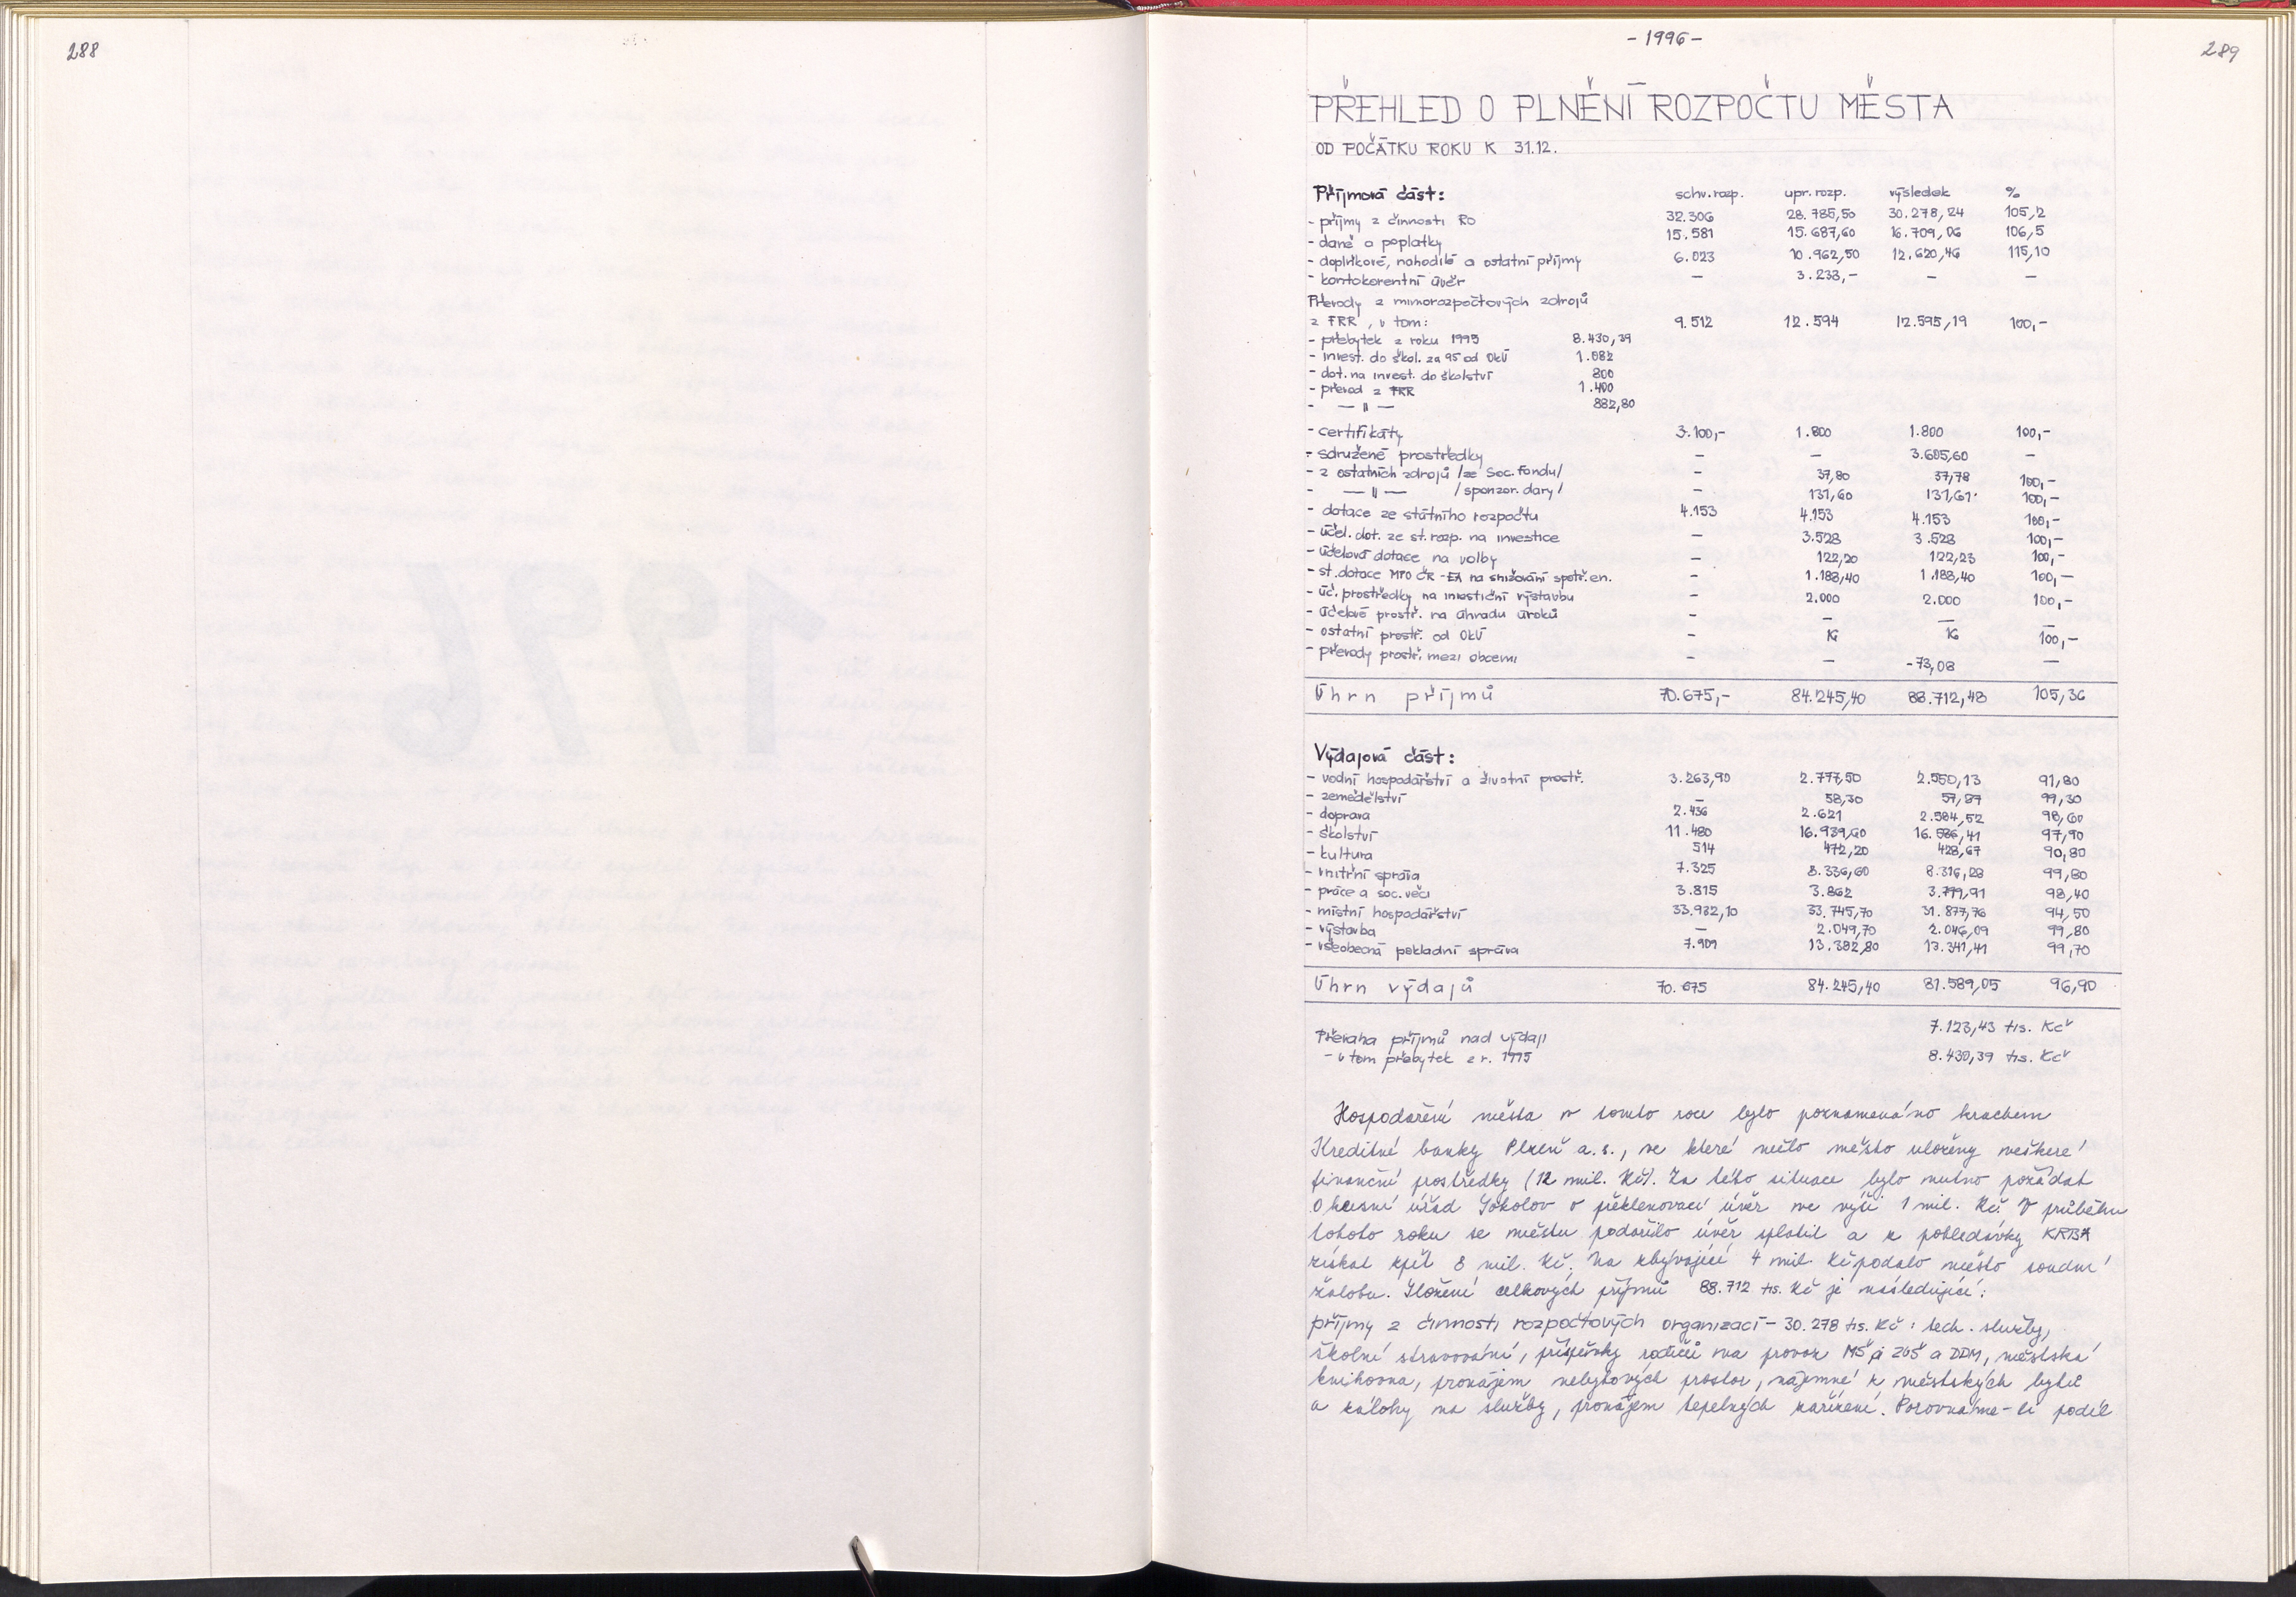 288
- 1996 -
289
PŘEHLED O PLNĚNÍ ROZPOČTU MĚSTA
OD POČÁTKU ROKU K 31.12.
Příjmová část: schv. rozp. upr. rozp. výsledek %
- příjmy z činnosti RO 32.306 28.785,50 30.278,24 105,2
- daně a poplatky 15.581 15.687,60 16.709,06 106,5
- doplňkové, nahodilé a ostatní příjmy 6.023 10.962,50 12.620,46 115,10
- kontokorentní úvěr — 3.233,- — —
Převody z mimorozpočtových zdrojů
z FRR, v tom: 9.512 12.594 12.595,19 100,-
- přebytek z roku 1995 8.430,39
- invest. do škol. za 95 od OkÚ 1.082
- dot. na invest. do školství 800
- převod z FRR 1.400
- — " — 882,80
- certifikáty 3.100,- 1.800 1.800 100,-
- sdružené prostředky — — 3.605,60 —
- z ostatních zdrojů /ze Soc. fondu/ — 37,80 37,78 100,-
- — " — /sponzor. dary/ — 131,60 131,61 100,-
- dotace ze státního rozpočtu 4.153 4.153 4.153 100,-
- účel. dot. ze st. rozp. na investice — 3.528 3.528 100,-
- účelová dotace na volby — 122,20 122,23 100,-
- st. dotace MPO ČR - EA na snižování spotř. en. — 1.188,40 1.188,40 100,-
- úč. prostředky na investiční výstavbu — 2.000 2.000 100,-
- účelové prostř. na úhradu úroků — — — —
- ostatní prostř. od OkÚ — 16 16 100,-
- převody prostř. mezi obcemi — — -73,08 —
Úhrn příjmů 70.675,- 84.245,40 88.712,48 105,36
Výdajová část:
- vodní hospodářství a životní prostř. 3.263,90 2.777,50 2.550,13 91,80
- zemědělství — 58,30 57,87 99,30
- doprava 2.436 2.621 2.584,52 98,60
- školství 11.480 16.939,60 16.586,41 97,90
- kultura 514 472,20 428,67 90,80
- vnitřní správa 7.325 8.336,60 8.316,28 99,80
- práce a soc. věci 3.815 3.862 3.799,91 98,40
- místní hospodářství 33.932,10 33.745,70 31.877,76 94,50
- výstavba — 2.049,70 2.046,09 99,80
- všeobecná pokladní správa 7.909 13.382,80 13.341,41 99,70
Úhrn výdajů 70.675 84.245,40 81.589,05 96,90
Převaha příjmů nad výdaji 7.123,43 tis. Kč
- v tom přebytek z r. 1995 8.430,39 tis. Kč
Hospodaření města v tomto roce bylo poznamenáno krachem
Kreditné banky Plzeň a.s., ve které mělo město uloženy veškeré
finanční prostředky (12 mil. Kč). Za této situace bylo nutno požádat
Okresní úřad Sokolov o překlenovací úvěr ve výši 1 mil. Kč. V průběhu
tohoto roku se městu podařilo úvěr splatit a z pohledávky KRBA
získat zpět 8 mil. Kč. Na zbývající 4 mil. Kč podalo město soudní
žalobu. Složení celkových příjmů 88.712 tis. Kč je následující:
příjmy z činnosti rozpočtových organizací - 30.278 tis. Kč: tech. služby,
školní stravování, příspěvky rodičů na provoz MŠ, ZUŠ a DDM, městská
knihovna, pronájem nebytových prostor, nájemné z městských bytů
a zálohy na služby, pronájem tepelných zařízení. Porovnáme-li podíl